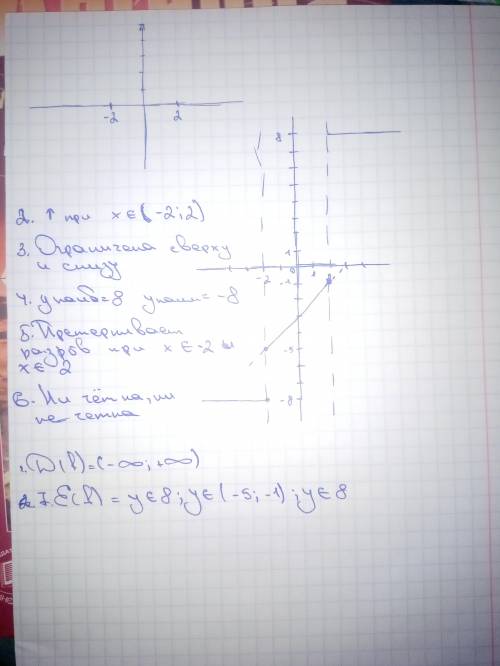 -2 2
8
2. ↑ при x ∈ (-2; 2)
3. Ограничена сверху
и снизу
1
0 1
-2
-1
4. y наиб=8 y наим= -8
5. Претерпивает
разрыв при x ∈ -2 и
x ∈ 2
-5
6. Ни чётна, ни
не четна
-8
1. D(f)=(-∞; +∞)
7. E(f) = y∈8; y∈(-5; -1); y∈8